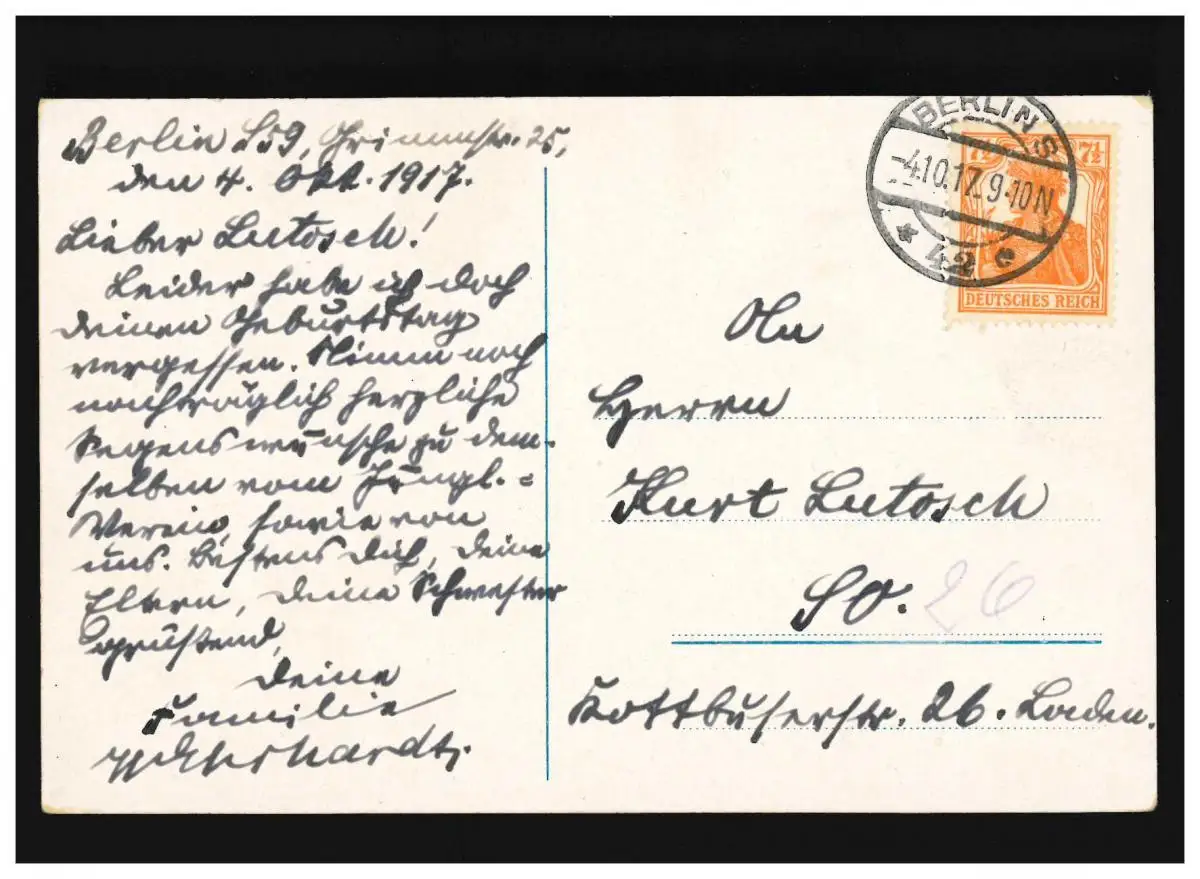 Berlin S59, Grimmstr. 25,
den 4. Okt. 1917.
Lieber Lutosch!
Leider habe ich doch
deinen Geburtstag
vergessen. Nimm noch
nachträglich herzliche
Segenswünsche zu dem-
selben vom Jüngl.=
Verein, sowie von
uns. Bestens Dich, Deine
Eltern, Deine Schwester
grüßend,
Deine
Familie
Ehrhardt.
BERLIN S
-4.10.17. 9-10N
* 42 e
7½ 7½
DEUTSCHES REICH
An
Herrn
Kurt Lutosch
SO. 26
Kottbuserstr. 26. Laden.